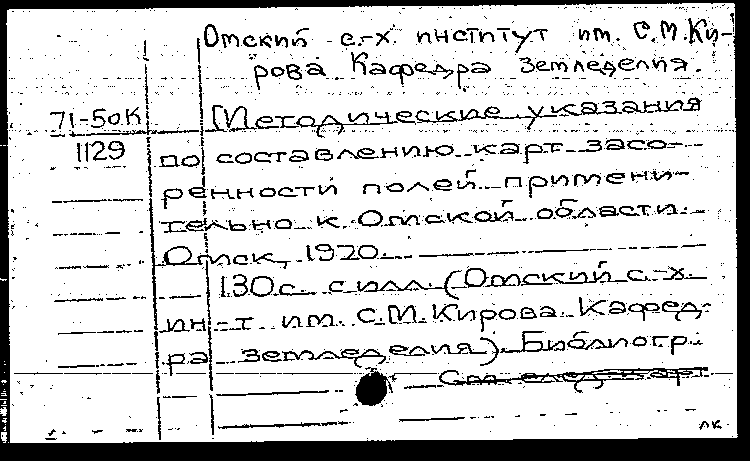 Омский с.-х. институт им. С.М.Ки-
рова Кафедра Земледелия.
71-50К Методические указания
1129 по составлению карт засо-
ренности полей примени-
тельно к Омской области.
Омск, 1970.
130с. с илл. (Омский с.-х.
ин-т им. С.М.Кирова. Кафед-
ра земледелия). Библиогр.
См след карт
лк